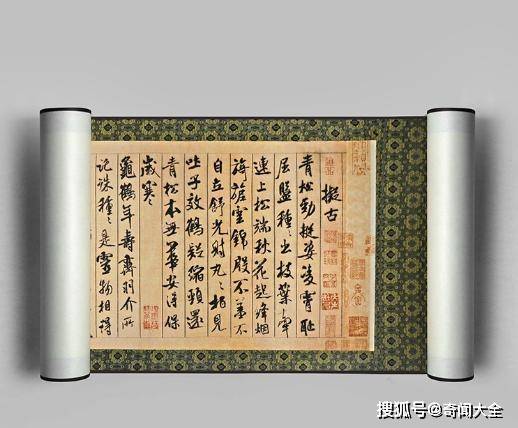 擬古
青松勁挺姿凌霄恥
屈盤種々出枝葉牽
連上松端秋花起絳烟
旖旎雲錦殷不羞不
自立舒光射丸々柏見
吐子效鶴疑縮頸還
青松本無華安得保
歲寒
龜鶴年壽齊羽介所
託殊種々是靈物相得
搜狐号@奇闻大全